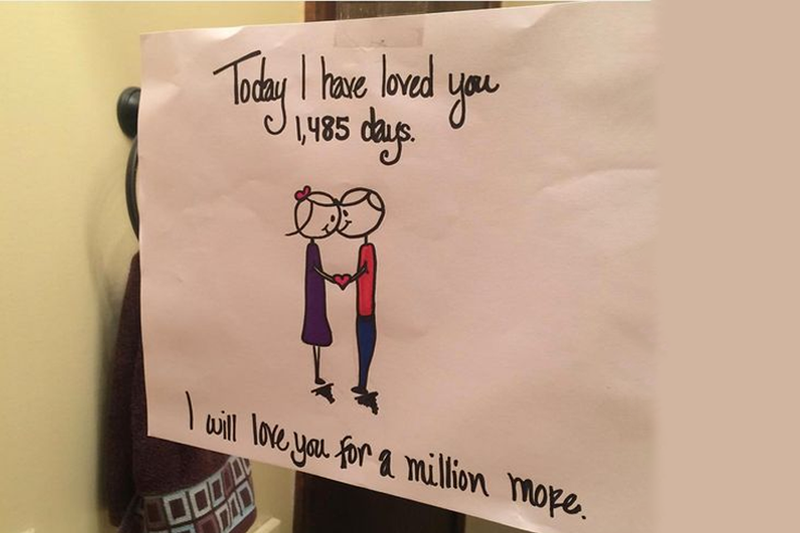 Today I have loved you
1,485 days.
I will love you for a million more.